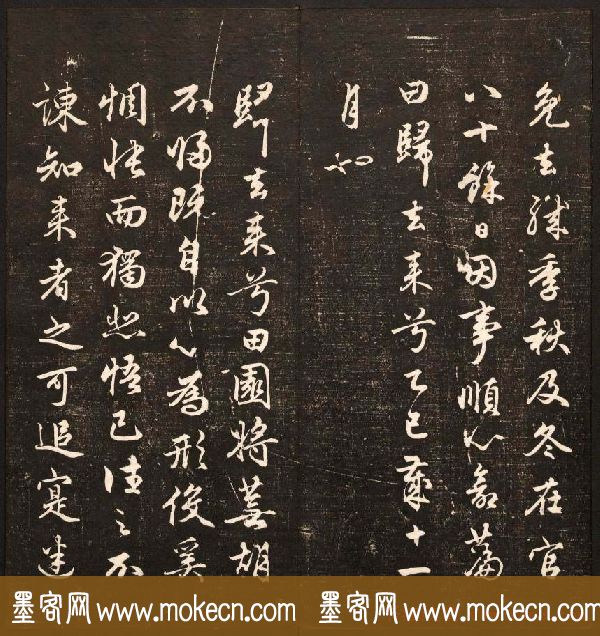 免去職季秋及冬在官
八十餘日因事順心命篇
曰歸去來兮乙巳歲十一
月也
歸去來兮田園將蕪胡
不歸既自以心為形役奚
惆悵而獨悲悟已往之不
諫知來者之可追寔迷
墨客网 www.mokecn.com 墨客网 www.mokecn.com